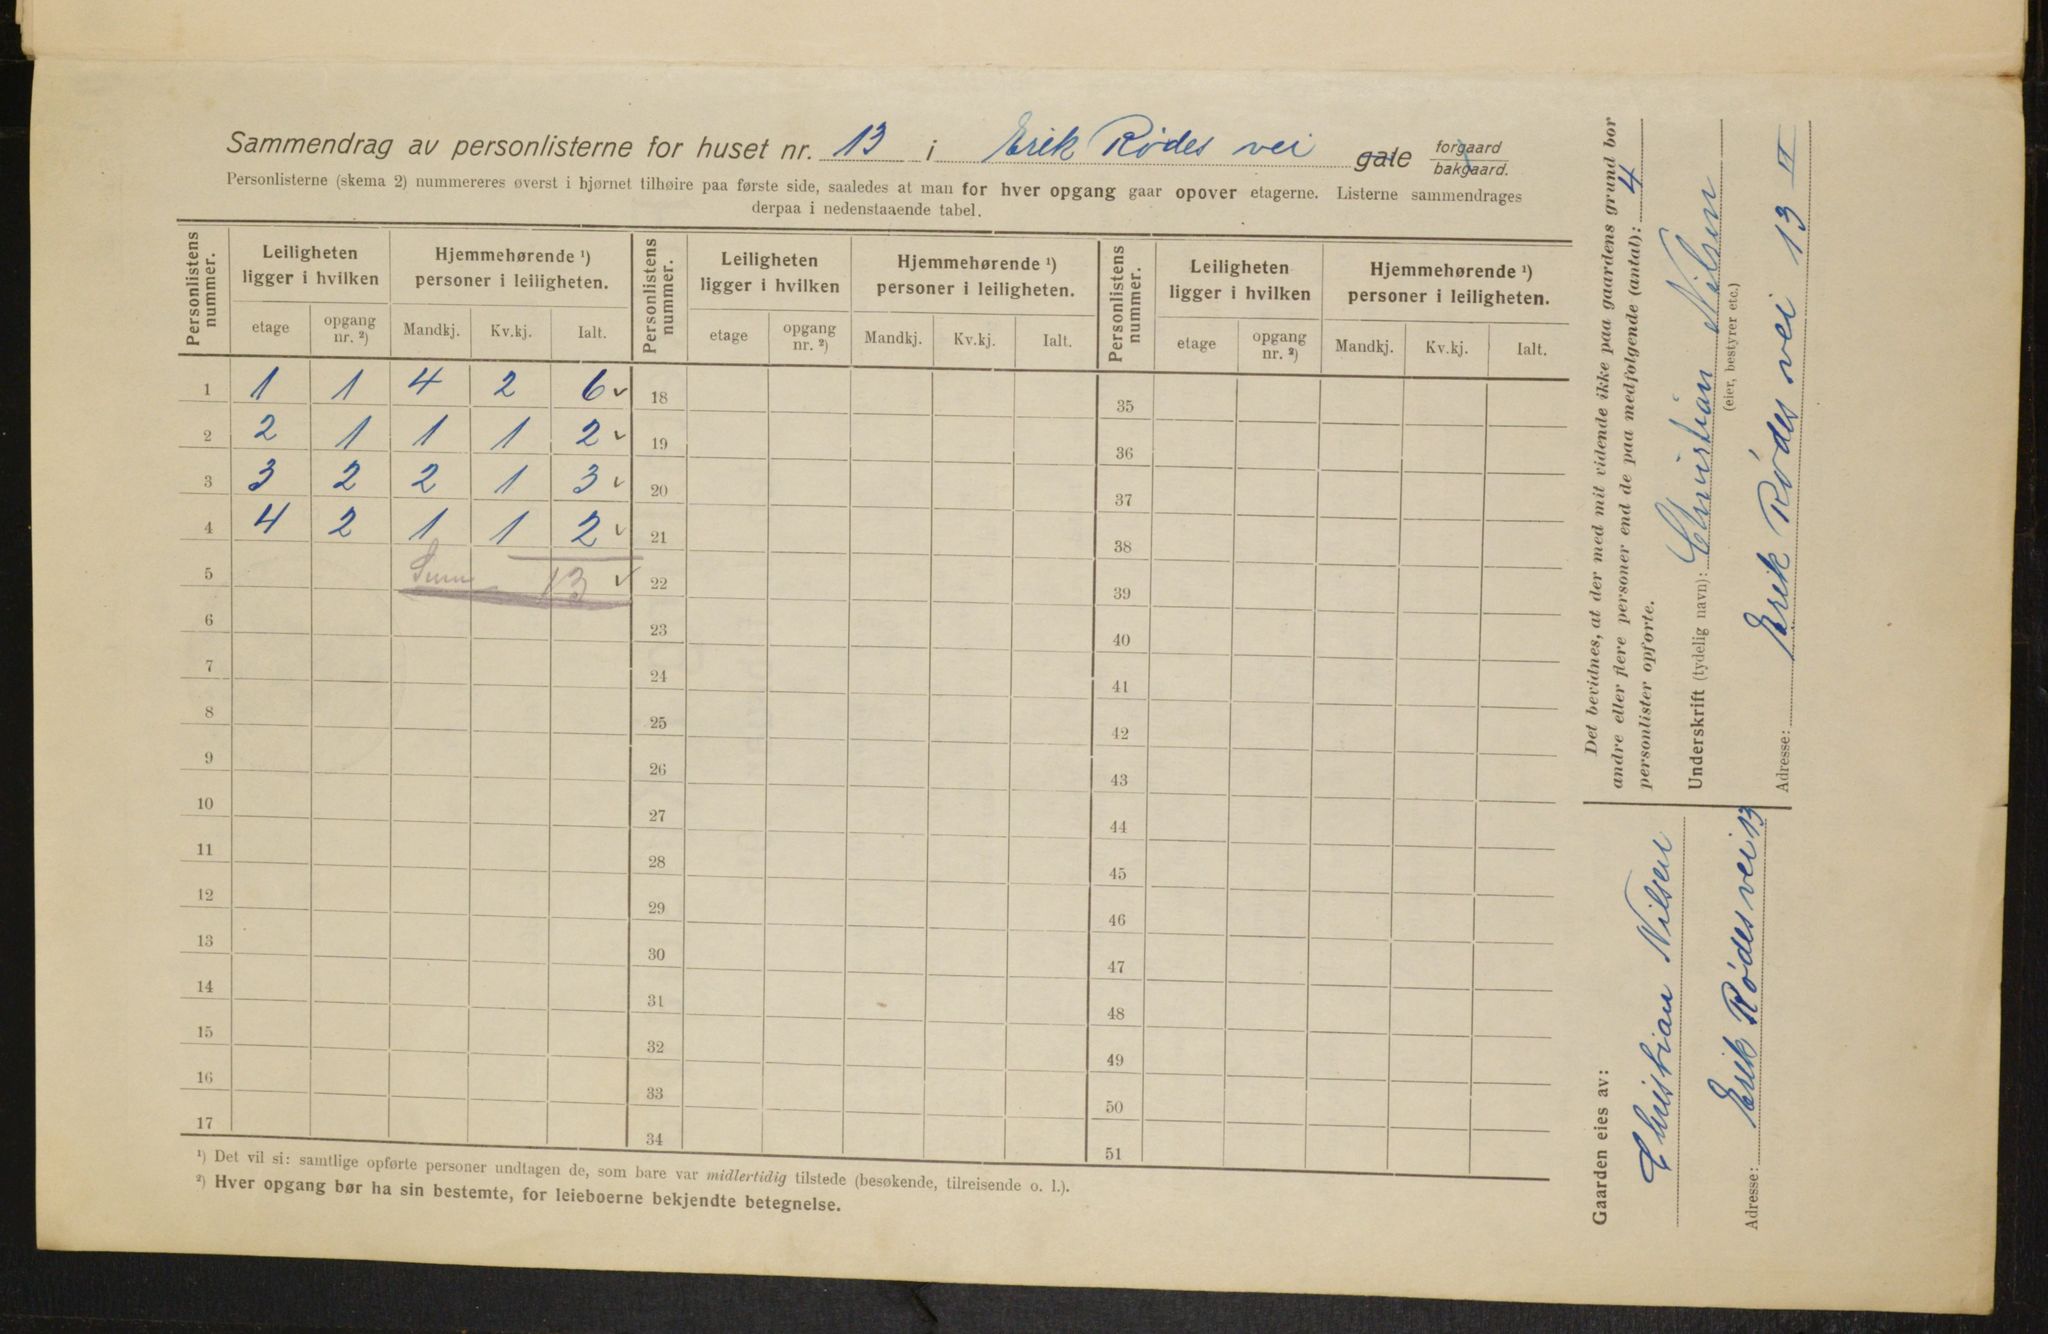 Sammendrag av personlisterne for huset nr. 13 i Erik Rødes vei gate forgaard bakgaard.
Personlisterne (skema 2) nummereres øverst i hjørnet tilhøire paa første side, saaledes at man for hver opgang gaar opover etagerne. Listerne sammendrages
derpaa i nedenstaaende tabel.
Personlistens nummer. Leiligheten ligger i hvilken Hjemmehørende ¹) personer i leiligheten. Personlistens nummer. Leiligheten ligger i hvilken Hjemmehørende ¹) personer i leiligheten. Personlistens nummer. Leiligheten ligger i hvilken Hjemmehørende ¹) personer i leiligheten.
etage opgang nr. ²) Mandkj. Kv.kj. Ialt. etage opgang nr. ²) Mandkj. Kv.kj. Ialt. etage opgang nr. ²) Mandkj. Kv.kj. Ialt.
1 1 1 4 2 6 ✓ 18 35
2 2 1 1 1 2 ✓ 19 36
3 3 2 2 1 3 ✓ 20 37
4 4 2 1 1 2 ✓ 21 38
5 Sum 13 ✓ 22 39
6 23 40
7 24 41
8 25 42
9 26 43
10 27 44
11 28 45
12 29 46
13 30 47
14 31 48
15 32 49
16 33 50
17 34 51
¹) Det vil si: samtlige opførte personer undtagen de, som bare var midlertidig tilstede (besøkende, tilreisende o. l.).
²) Hver opgang bør ha sin bestemte, for leieboerne bekjendte betegnelse.
Det bevidnes, at der med mit vidende ikke paa gaardens grund bor
andre eller flere personer end de paa medfølgende (antal): 4
personlister opførte.
Underskrift (tydelig navn): Christian Nilsen
(eier, bestyrer etc.)
Adresse: Erik Rødes vei 13 II
Gaarden eies av:
Christian Nilsen
Adresse: Erik Rødes vei 13